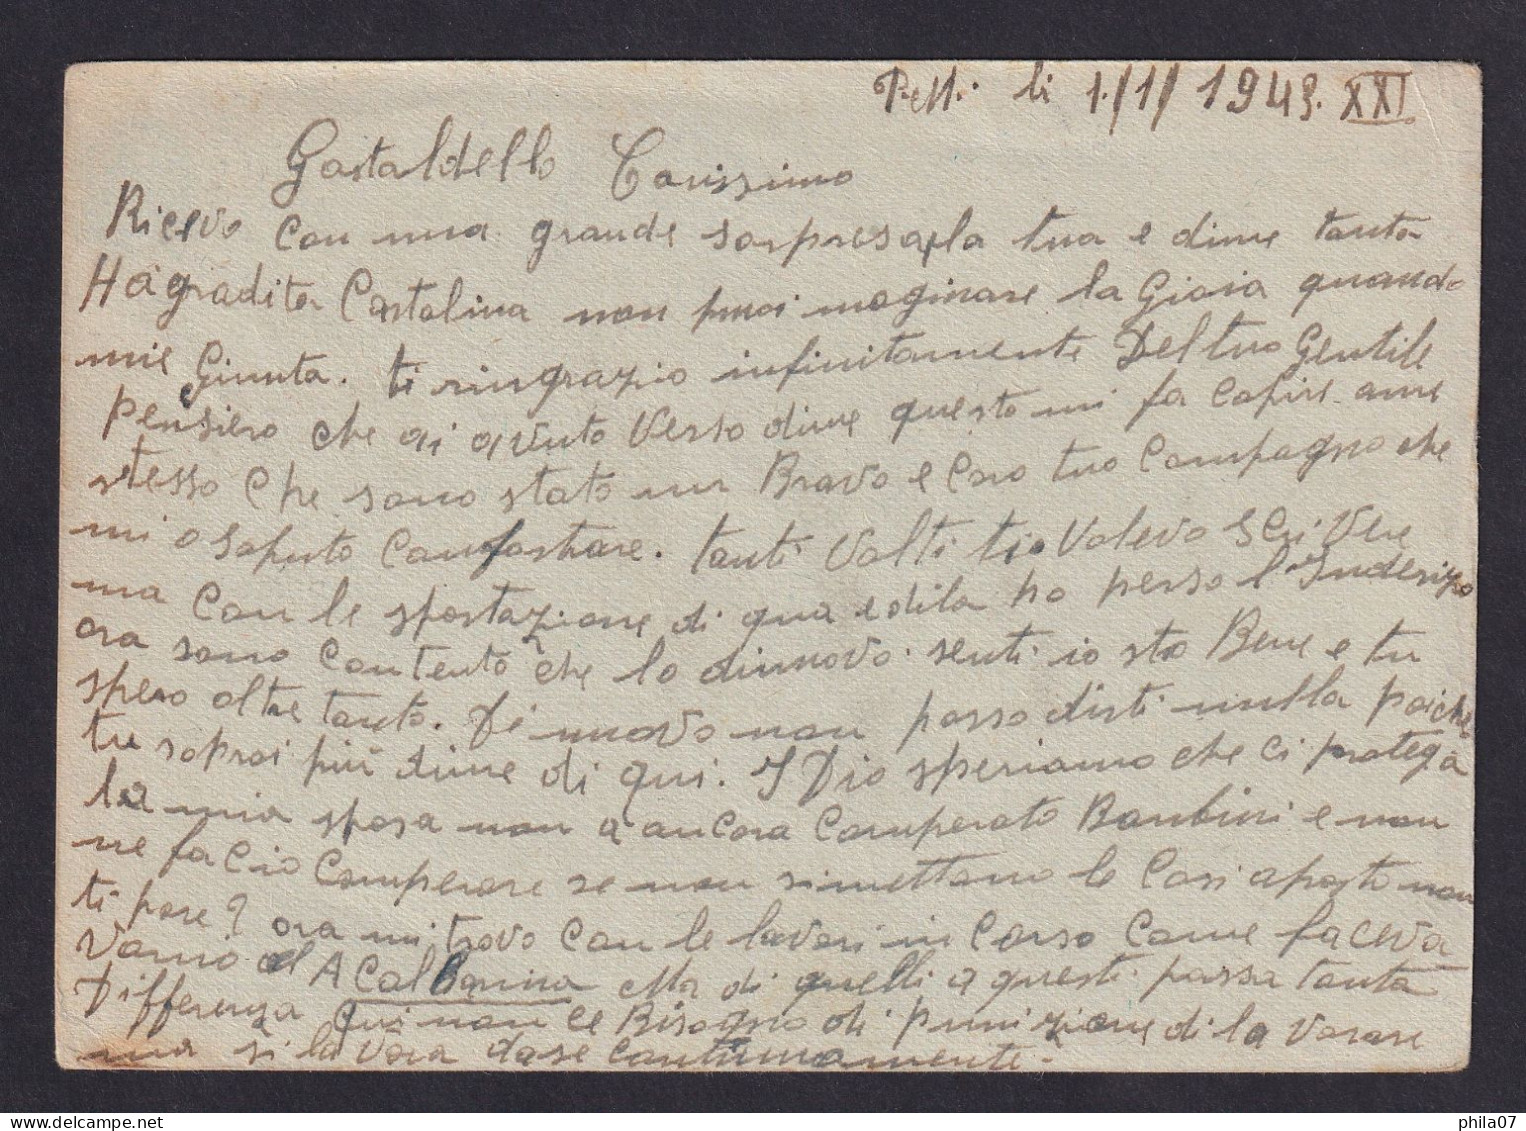 li 1./1/1943. XXI.
Gastaldello Carissimo
Ricevo con una grande sorpresa la tua e dime tanta
Hagradita Cartolina non puoi maginare la Gioia quando
mie Giunta. ti ringrazio infinitamente Del tuo Gentile
pensiero che ai avuto verso dime questo mi fa capire ame
stesso che sono stato un Bravo e Caro tuo Compagno che
mi o saputo Confortare. tanti Volti tio Volevo Scrivere
ma Con le spostazione di qua edila ho perso l'Inderizo
ora sono contento che lo dinuovo. senti io sto Bene e tu
spero oltre tanto. Di nuovo non posso dirti nulla poiche
tu saprai più dime di qui. I Dio speriamo che ci protega
la mia sposa non a ancora Comperato Bambini e non
ne facio Comperare se non simettano le Cosi aposto non
ti pare? ora mi trovo Con le lavori in Corso Come faceva
Vamo al A Calbarina Ma di quelli a questi passa tanta
Differenza qui non ce Bisogno di punizione di la vorare
ma si la vora dase Continuamente.
phila07